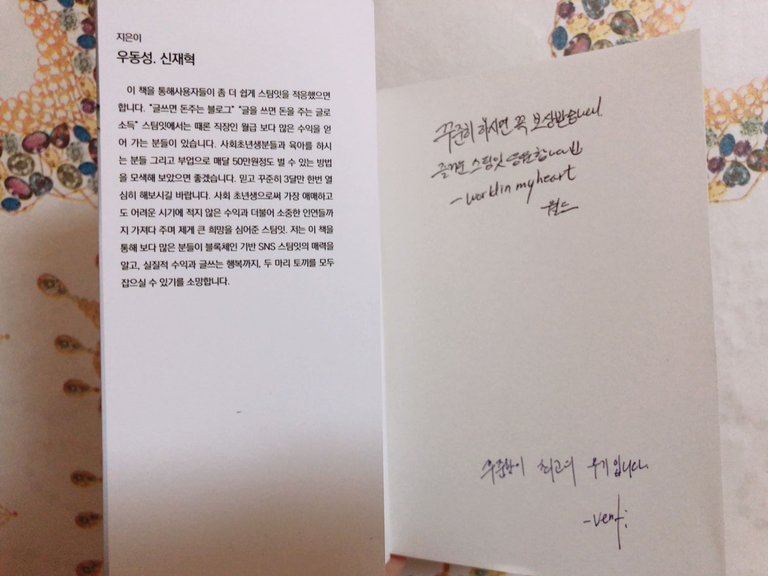 지은이
우동성. 신재혁
이 책을 통해사용자들이 좀 더 쉽게 스팀잇을 적응했으면
합니다. "글쓰면 돈주는 블로그" "글을 쓰면 돈을 주는 글로
소득" 스팀잇에서는 때론 직장인 월급 보다 많은 수익을 얻
어 가는 분들이 있습니다. 사회초년생분들과 육아를 하시
는 분들 그리고 부업으로 매달 50만원정도 벌 수 있는 방법
을 모색해 보았으면 좋겠습니다. 믿고 꾸준히 3달만 한번 열
심히 해보시길 바랍니다. 사회 초년생으로써 가장 애매하고
도 어려운 시기에 적지 않은 수익과 더불어 소중한 인연들까
지 가져다 주며 제게 큰 희망을 심어준 스팀잇. 저는 이 책을
통해 보다 많은 분들이 블록체인 기반 SNS 스팀잇의 매력을
알고, 실질적 수익과 글쓰는 행복까지, 두 마리 토끼를 모두
잡으실 수 있기를 소망합니다.
꾸준히 하시면 꼭 보상받습니다.
즐거운 스팀잇
- worldin myheart
월드
최고의 무기입니다.